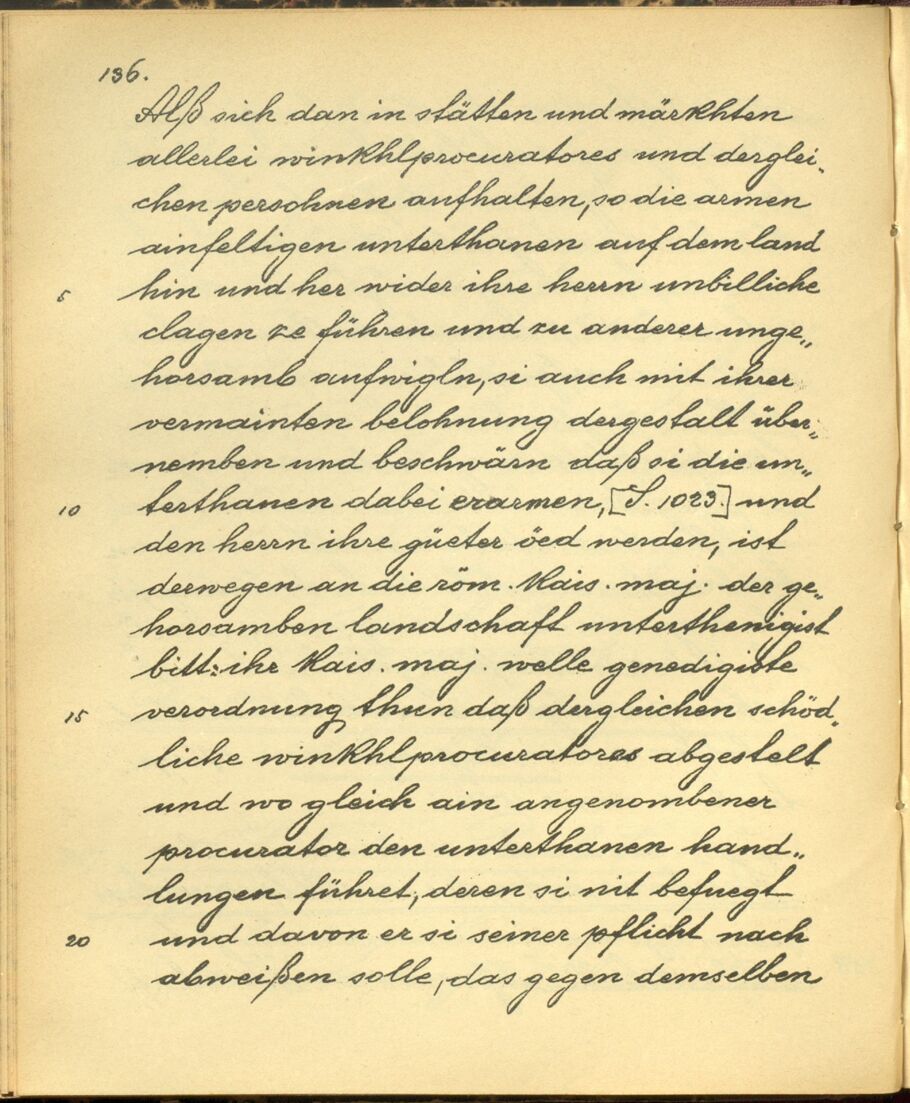 136.
Alß sich dan in stätten und märkhten
allerlei winkhlprocuratores und derglei„
chen persohnen aufhalten, so die armen
ainfeltigen unterthanen auf dem land
5 hin und her wider ihre herrn unbilliche
clagen ze führen und zu anderer unge„
horsamb aufwigln, si auch mit ihrer
vermainten belohnung dergestalt über„
nemben und beschwärn daß si die un„
10 terthanen dabei erarmen, [S. 1023.] und
den herrn ihre güeter öed werden, ist
derwegen an die röm. Kais. maj. der ge„
horsamben landschaft unterthenigist
bitt: ihr Kais. maj. welle genedigiste
15 verordnung thun daß dergleichen schöd„
liche winkhlprocuratores abgestelt
und wo gleich ain angenombener
procurator den unterthanen hand„
lungen führet, deren si nit befuegt
20 und davon er si seiner pflicht nach
abweißen solle, das gegen demselben